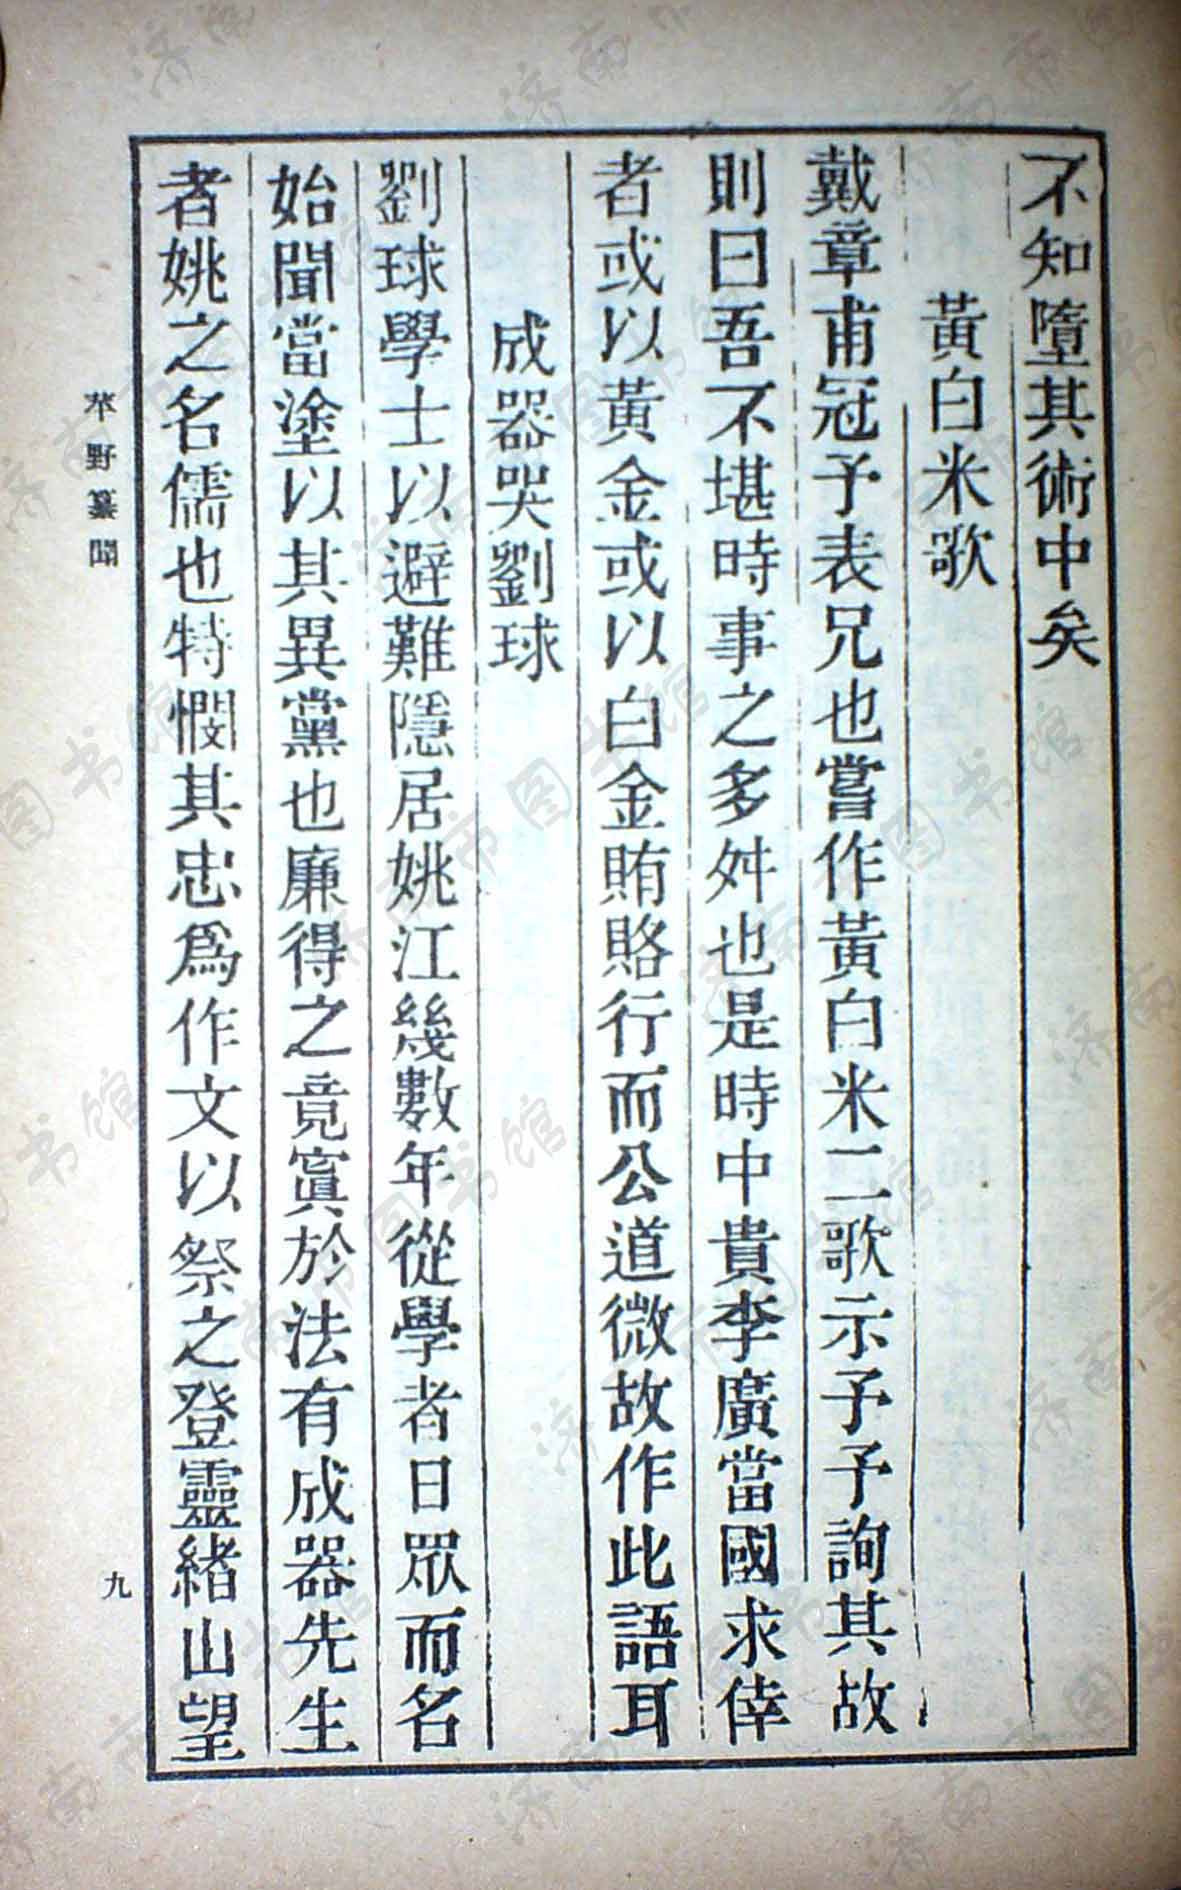 不知墮其術中矣
黃白米歌
戴章甫冠予表兄也嘗作黃白米二歌示予予詢其故
則曰吾不堪時事之多舛也是時中貴李廣當國求倖
者或以黃金或以白金賄賂行而公道微故作此語耳
成器哭劉球
劉球學士以避難隱居姚江幾數年從學者日眾而名
始聞當塗以其異黨也廉得之竟寘於法有成器先生
者姚之名儒也特憫其忠爲作文以祭之登靈緒山望
苹野纂聞
九
济南市图书馆